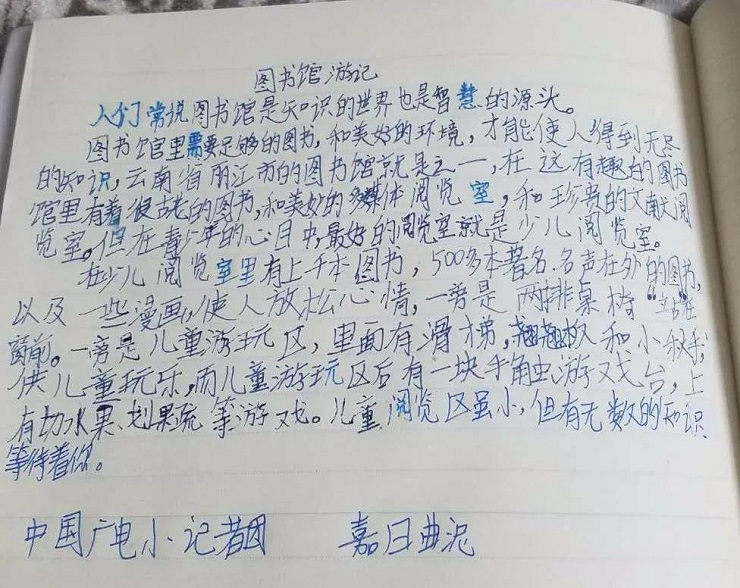 图书馆游记
人们常说图书馆是知识的世界也是智慧的源头。
图书馆里需要足够的图书,和美好的环境,才能使人得到无尽
的知识,云南省丽江市的图书馆就是之一,在这有趣的图书
馆里有着很古老的图书,和美好的多媒体阅览室,和珍贵的文献阅
览室。但在青少年的心目中,最好的阅览室就是少儿阅览室。
在少儿阅览室里有上千本图书,500多本著名、名声在外的图书,
以及一些漫画,使人放松心情,一旁是两排桌椅“站”在
窗前。一旁是儿童游玩区,里面有滑梯,翘翘板和小秋千,
供儿童玩乐,而儿童游玩区后有一块手触虫游戏台,上
有切水果、划果蔬等游戏。儿童阅览区虽小,但有无数的知识
等待着你。
中国广电小记者团 嘉日曲泥